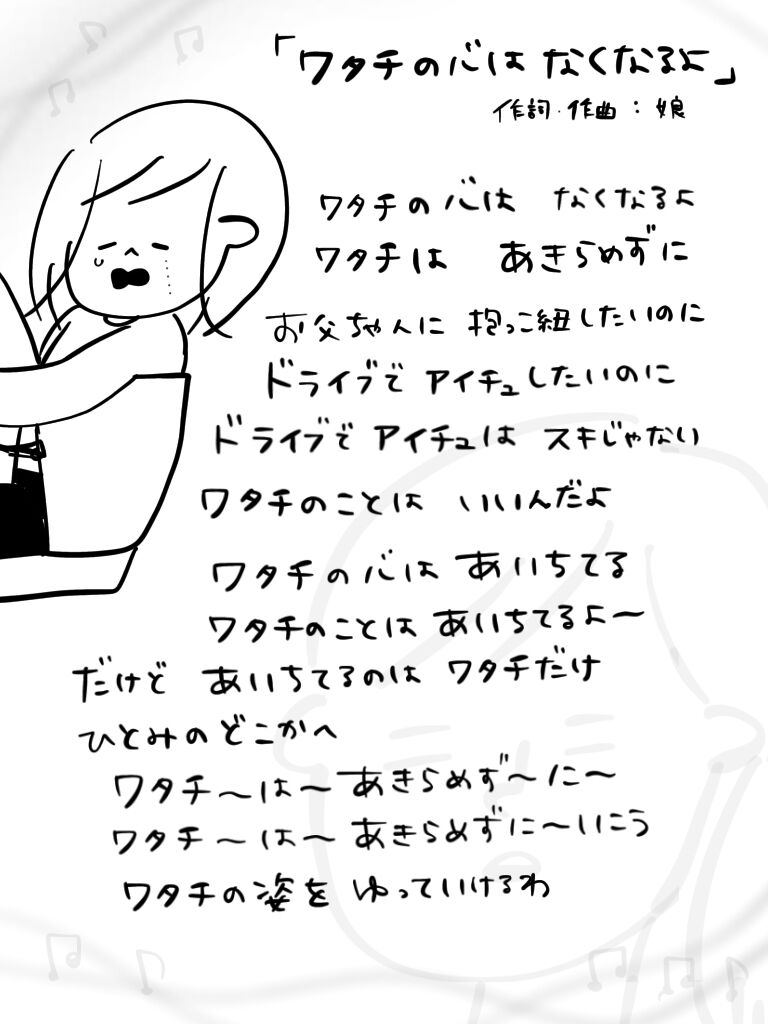 「ワタチの心は なくなるよ」
作詞・作曲：娘
ワタチの心は なくなるよ
ワタチは あきらめずに
お父ちゃんに 抱っこ紐したいのに
ドライブで アイチュしたいのに
ドライブで アイチュは スキじゃない
ワタチのことは いいんだよ
ワタチの心は あいちてる
ワタチのことは あいちてるよ〜
だけど あいちてるのは ワタチだけ
ひとみのどこかへ
ワタチ〜は〜あきらめず〜に〜
ワタチ〜は〜あきらめずに〜いこう
ワタチの姿を ゆっていけるわ